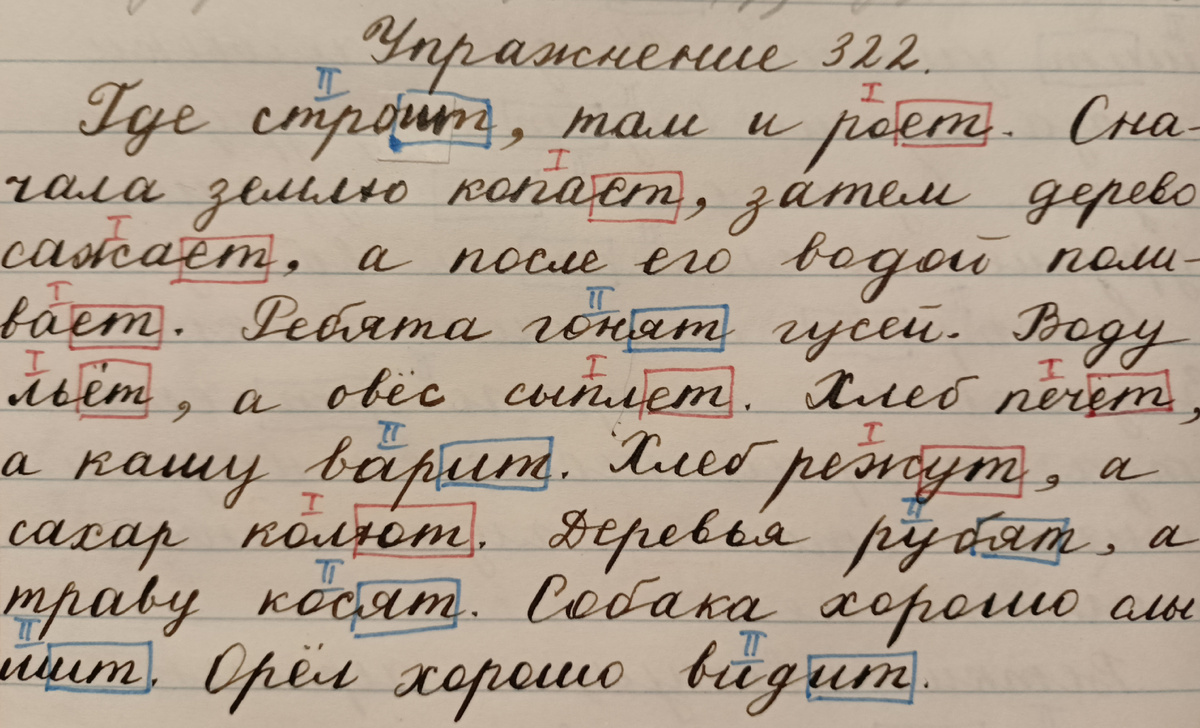 Упражнение 322.
II I
Где строит, там и роет. Сна-
I
чала землю копает, затем дерево
I
сажает, а после его водой поли-
I II
вает. Ребята гонят гусей. Воду
I I I
льёт, а овёс сыплет. Хлеб печёт,
II I
а кашу варит. Хлеб режут, а
I II
сахар колют. Деревья рубят, а
II
траву косят. Собака хорошо слы
II II
шит. Орёл хорошо видит.